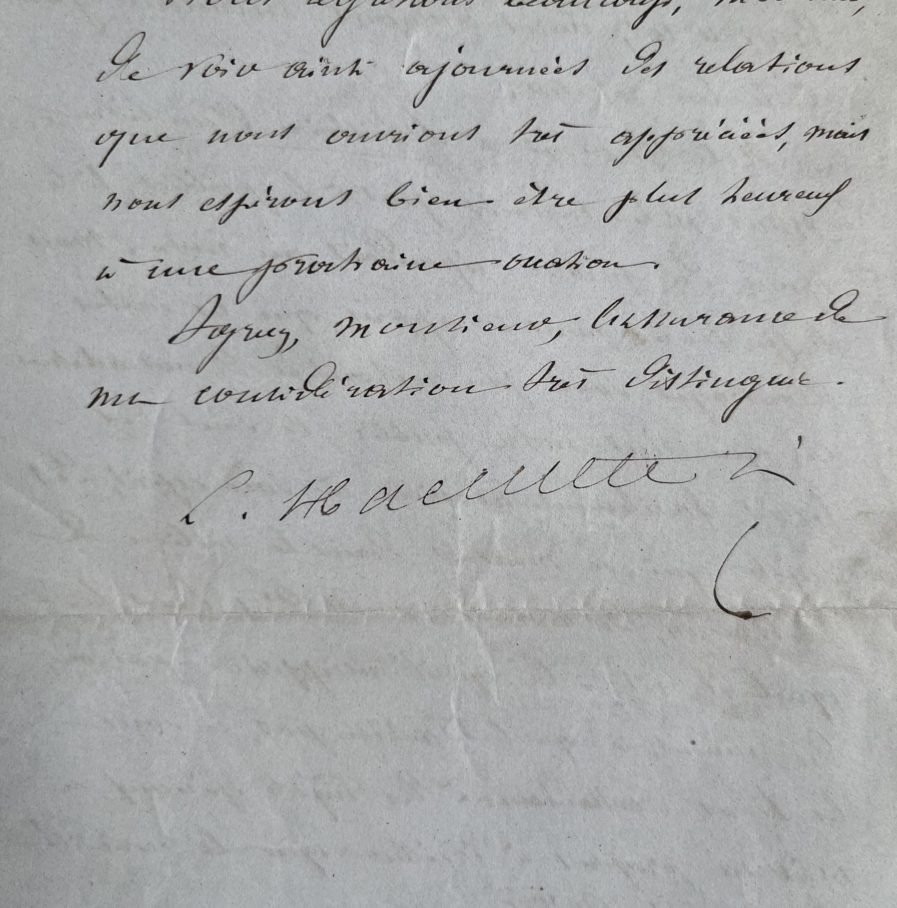 Nous regrettons beaucoup,
de voir ainsi ajournées des relations
que nous aurions très appréciées, mais
nous espérons bien être plus heureux
à une prochaine occasion.
Agréez, monsieur, l'assurance de
ma considération très distinguée.
L. Hachette